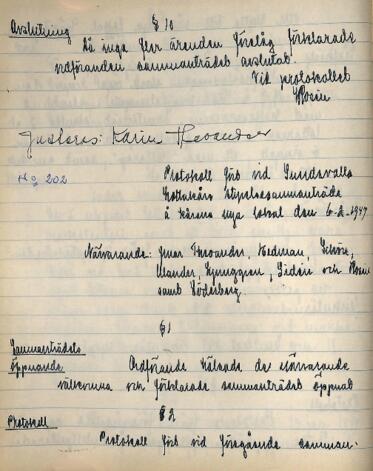 Avslutning § 10
Då inga fler ärenden förelåg förklarade
ordföranden sammanträdet avslutat.
Vid protokollet
Justeras: Karin
No 202
Protokoll förb vid Sundsvalls
Lottakårs Styrelsesammanträde
å kårens nya lokal den 6-2-1947
Närvarande: Hedman,
Ulander, Ljunggren, och
samt Söderberg.
§ 1
Sammanträdets
öppnande Ordförande hälsade de närvarande
välkomna och förklarade sammanträdet öppnat
§ 2
Protokoll
Protokoll förb vid föregående samman-